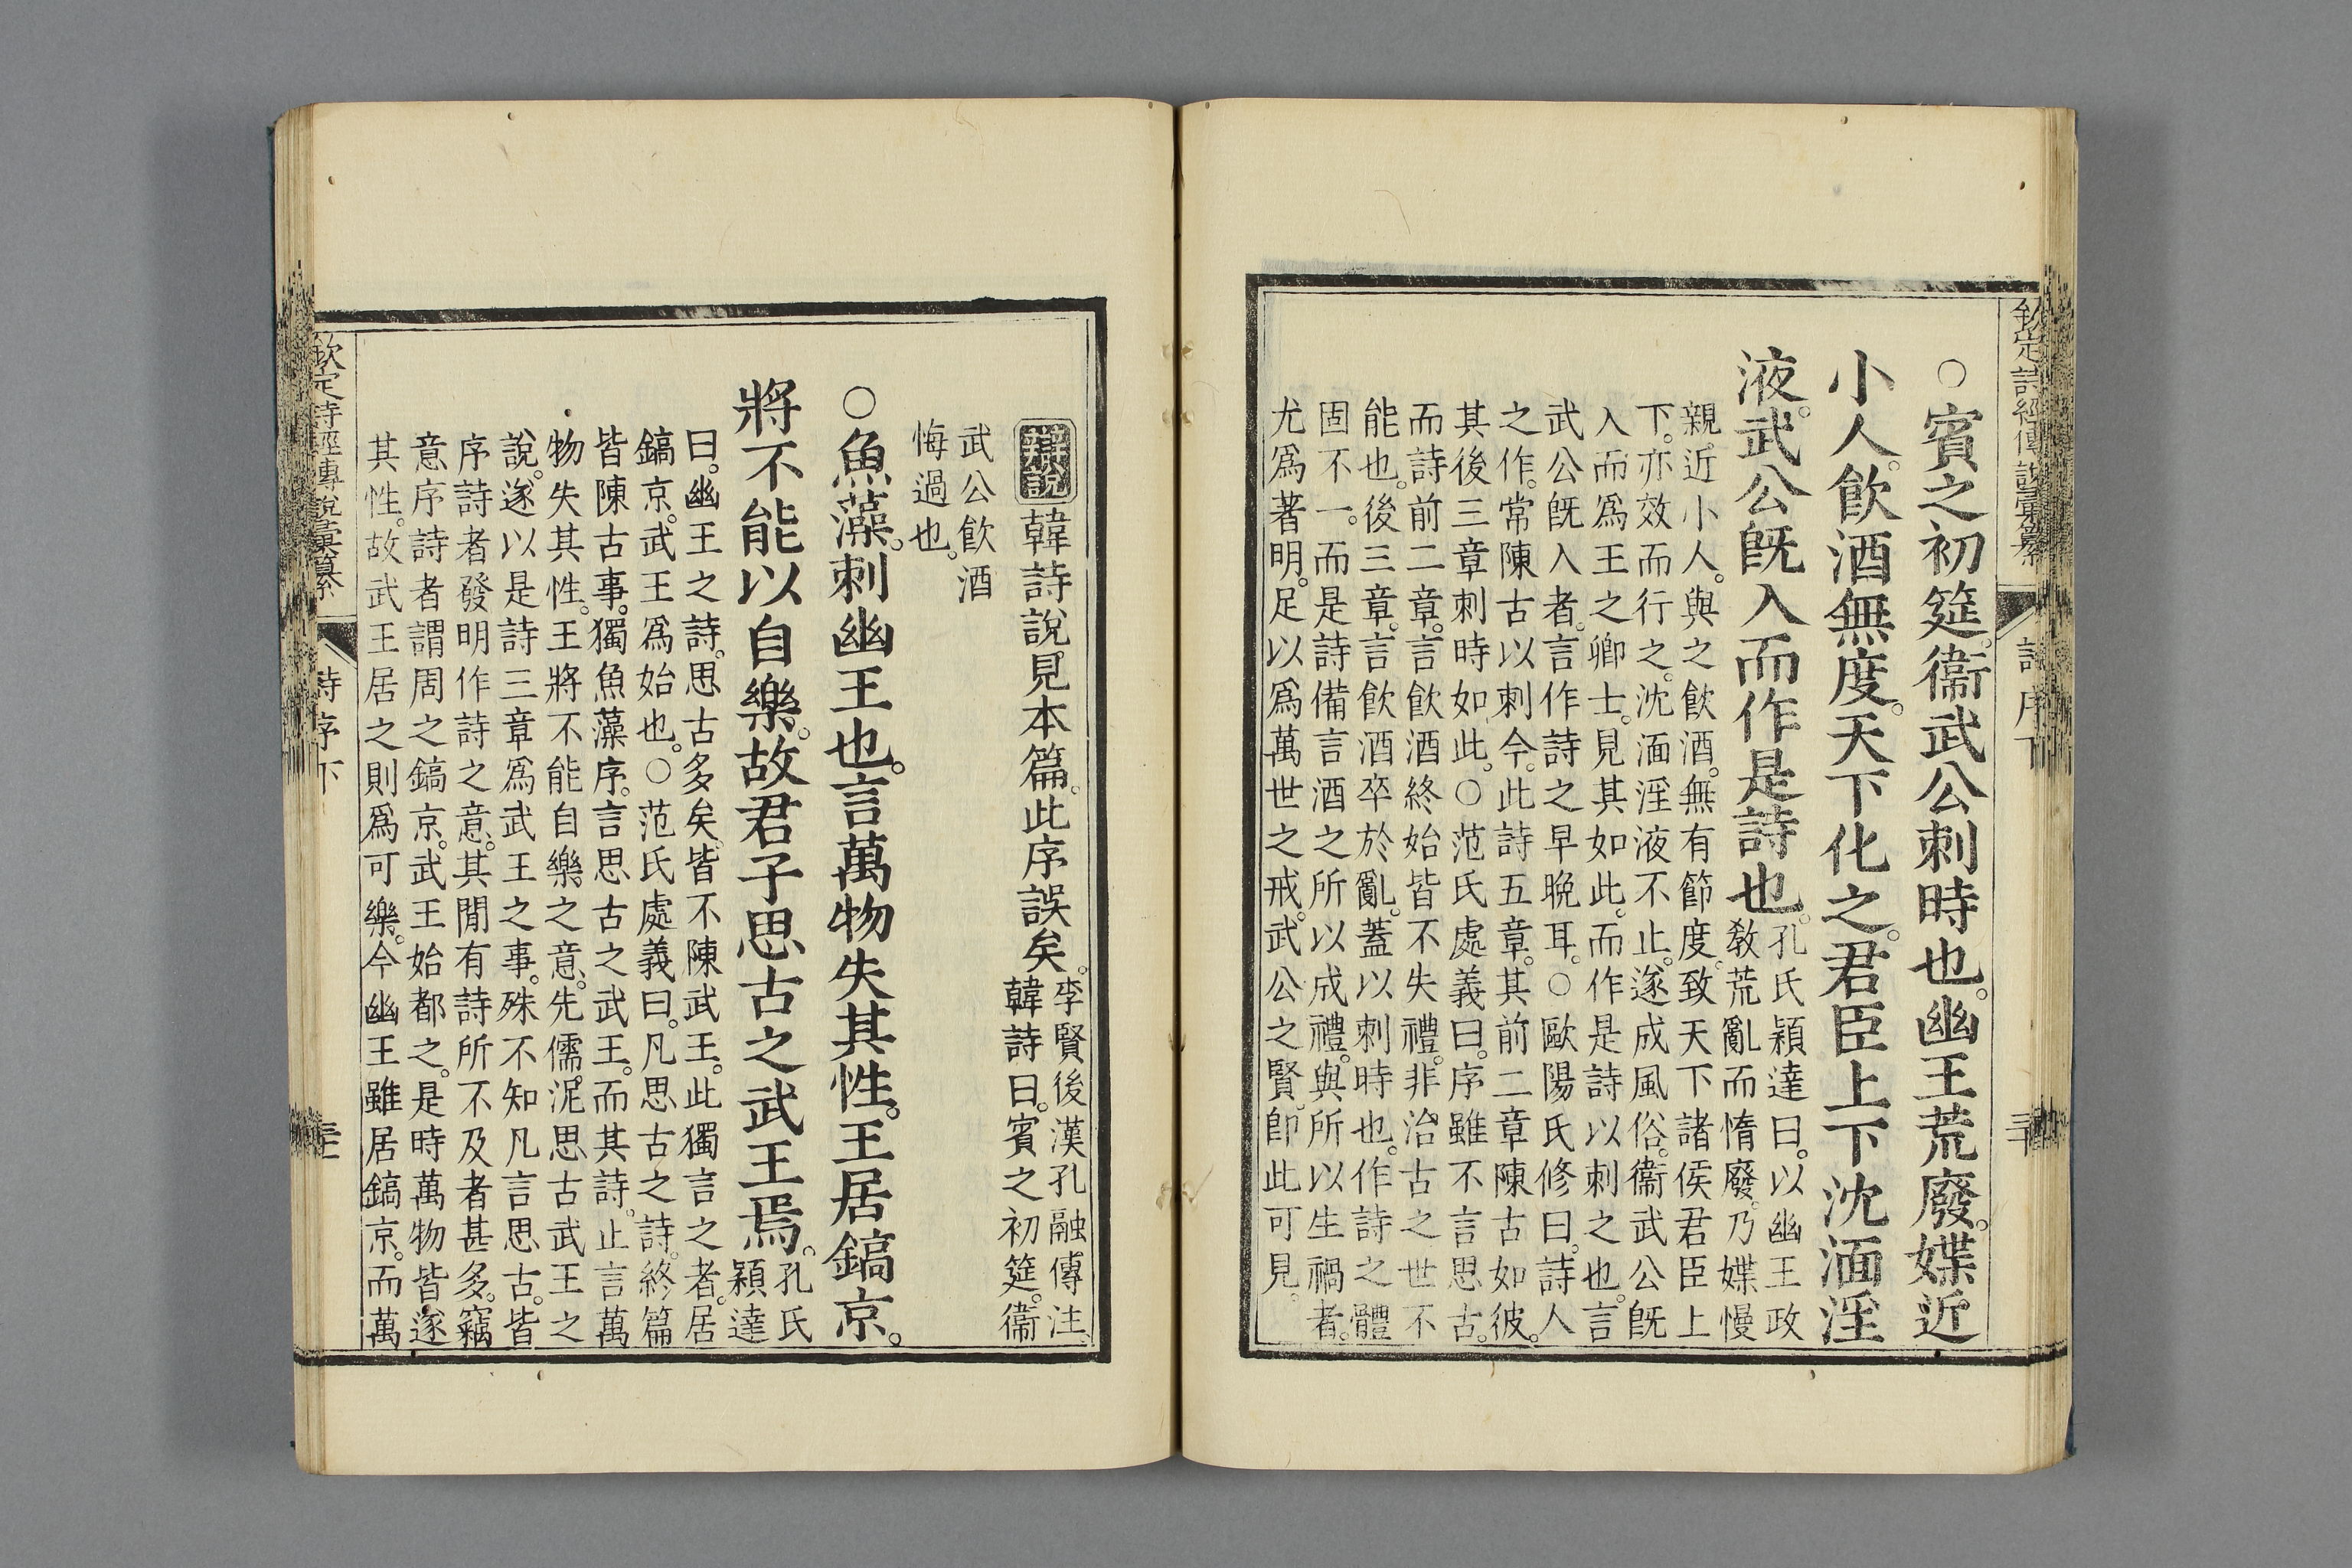 欽定詩經傳說彙纂
詩序下
○賓之初筵。衞武公刺時也。幽王荒廢。媟近
小人。飮酒無度。天下化之。君臣上下沈湎淫
液。武公旣入而作是詩也。
孔氏穎達曰。以幽王政
敎荒亂而惰廢。乃媟慢
親近小人。與之飮酒。無有節度。致天下諸侯君臣上
下。亦效而行之。沈湎淫液不止。遂成風俗。衞武公旣
入而爲王之卿士。見其如此。而作是詩以刺之也。言
武公旣入者。言作詩之早晚耳。○歐陽氏修曰。詩人
之作。常陳古以刺今。此詩五章。其前二章陳古如彼。
其後三章刺時如此。○范氏處義曰。序雖不言思古。
而詩前二章。言飮酒終始皆不失禮。非治古之世不
能也。後三章。言飮酒卒於亂。蓋以刺時也。作詩之體
固不一。而是詩備言酒之所以成禮。與所以生禍者。
尤爲著明。足以爲萬世之戒。武公之賢。卽此可見。
辯說 韓詩說。見本篇。此序誤矣。
李賢後漢孔融傳注。
韓詩曰。賓之初筵。衞
武公飮酒
悔過也。
○魚藻。刺幽王也。言萬物失其性。王居鎬京。
將不能以自樂。故君子思古之武王焉。
孔氏
穎達
曰。幽王之詩。思古多矣。皆不陳武王。此獨言之者。居
鎬京。武王爲始也。○范氏處義曰。凡思古之詩。終篇
皆陳古事。獨魚藻序。言思古之武王。而其詩。止言萬
物失其性。王將不能自樂之意。先儒。泥思古武王之
說。遂以是詩三章爲武王之事。殊不知凡言思古。皆
序詩者發明作詩之意。其閒有詩所不及者甚多。竊
意序詩者謂周之鎬京。武王始都之。是時萬物皆遂
其性。故武王居之則爲可樂。今幽王雖居鎬京。而萬
欽定詩經傳說彙纂
詩序下